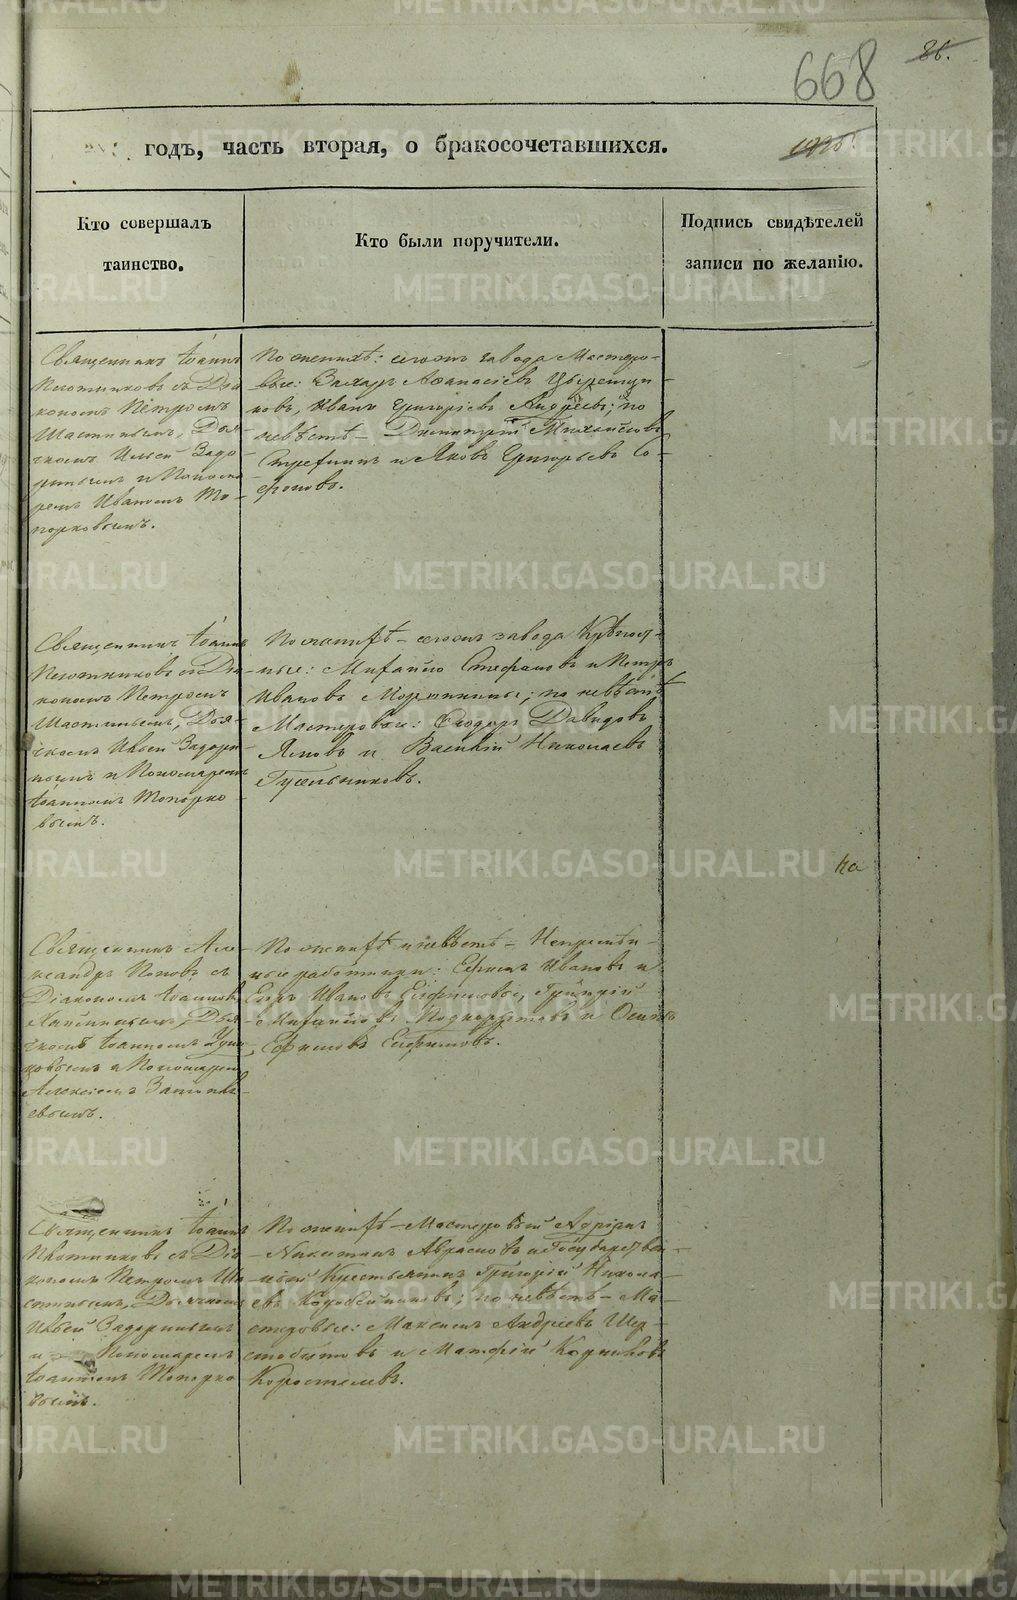 668
86.
годъ, часть вторая, о бракосочетавшихся.
Кто совершалъ
таинство.
Кто были поручители.
Подпись свидѣтелей
записи по желанію.
Священникъ Іоаннъ
Плотниковъ съ Діа-
кономъ Петромъ
Шастинымъ, Дья-
чкомъ Ильей Задо-
ринымъ и Понома-
ремъ Иваномъ То-
порковымъ.
По женихѣ: сего завода Мастеро-
вые: Захаръ Аѳанасіевъ
ковъ, Иванъ Григоріевъ Андреевъ; по
невѣстѣ – Димитрій Михайловъ
и Яковъ Григорьевъ Со-
фоновъ.
Священникъ Іоаннъ
Плотниковъ съ Діа-
кономъ Петромъ
Шастинымъ, Дья-
чкомъ Ильей Задори-
нымъ и Пономаремъ
Іоанномъ Топорко-
вымъ.
По женихѣ – сего завода
ные: Михайло Стефановъ и Петръ
Ивановъ; по невѣстѣ
Мастеровые: Ѳеодоръ Давидовъ
и Василій Николаевъ
Гусельниковъ.
ка
Священникъ Але-
ксандръ Поповъ съ
Діакономъ Іоанномъ
Дья-
чкомъ Іоанномъ
и Пономаремъ
Алексіемъ
евымъ.
По женихѣ и невѣстѣ – Непремѣн-
ные работники: Ефимъ Ивановъ и
Егоръ Ивановъ Григорій
Михайловъ и Осипъ
Ефимовъ
Священникъ Іоаннъ
Плотниковъ съ Діа-
кономъ Петромъ Ша-
стинымъ, Дьячкомъ
Ильей Задоринымъ
и Пономаремъ
Іоанномъ Топорко-
вымъ.
По женихѣ – Мастеровый Адріанъ
и Государствен-
ный Крестьянинъ Григорій Никола-
евъ Коробейниковъ; по невѣстѣ – Ма-
стеровые: Максимъ Андреевъ Шер-
стобитовъ и Матфій
Коростелевъ.
METRIKI.GASO-URAL.RU